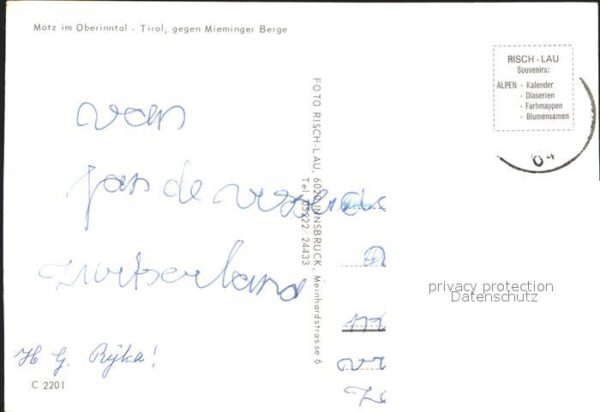 Mötz im Oberinntal - Tirol, gegen Mieminger Berge
RISCH - LAU
Souvenirs:
ALPEN - Kalender
- Diaserien
- Farbmappen
- Blumensamen
FOTO RISCH-LAU, 6020 INNSBRUCK, Meinhardstrasse 6
Tel. 05222 24433
van
jan de
zwitserland
privacy protection
Datenschutz
H G. Rijka!
C 2201